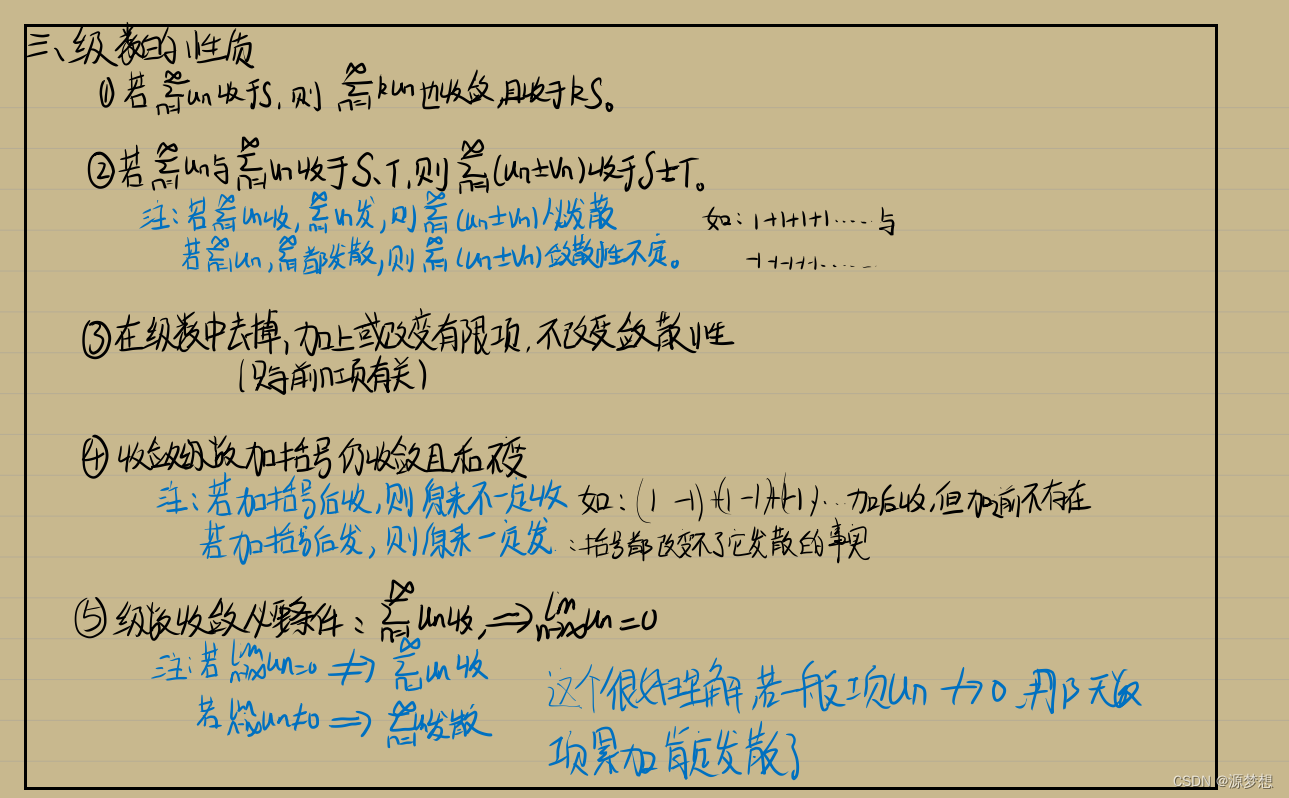 三、级数的性质
① 若 ∑_{n=1}^∞ un 收于S, 则 ∑_{n=1}^∞ kun 也收敛,且收于kS。
② 若 ∑_{n=1}^∞ un 与 ∑_{n=1}^∞ vn 收于 S、T,则 ∑_{n=1}^∞ (un±vn) 收于 S±T。
注: 若 ∑_{n=1}^∞ un 收, ∑_{n=1}^∞ vn 发, 则 ∑_{n=1}^∞ (un±vn) 必发散 如: 1+1+1+1······与
若 ∑_{n=1}^∞ un, ∑_{n=1}^∞ 都发散, 则 ∑_{n=1}^∞ (un±vn) 敛散性不定。 -1-1-1+1······
③ 在级数中去掉,加上或改变有限项,不改变敛散性
(只与前n项有关)
④ 收敛级数加括号仍收敛且和不变
注: 若加括号后收,则原来不一定收 如: (1 -1)+(1-1)+(-1)···加后收,但加前不存在
若加括号后发, 则原来一定发. :括号都改变不了它发散的事实
⑤ 级数收敛必要条件: ∑_{n=1}^∞ un收, ⇒ lim_{n→∞} un = 0
注: 若 lim_{n→∞} un=0 ⇏ ∑_{n=1}^∞ un 收
若 lim_{n→∞} un≠0 ⇒ ∑_{n=1}^∞ un发散
这个很好理解,若一般项un ↛ 0,那 无数
项累加肯定发散了
CSDN @源梦想